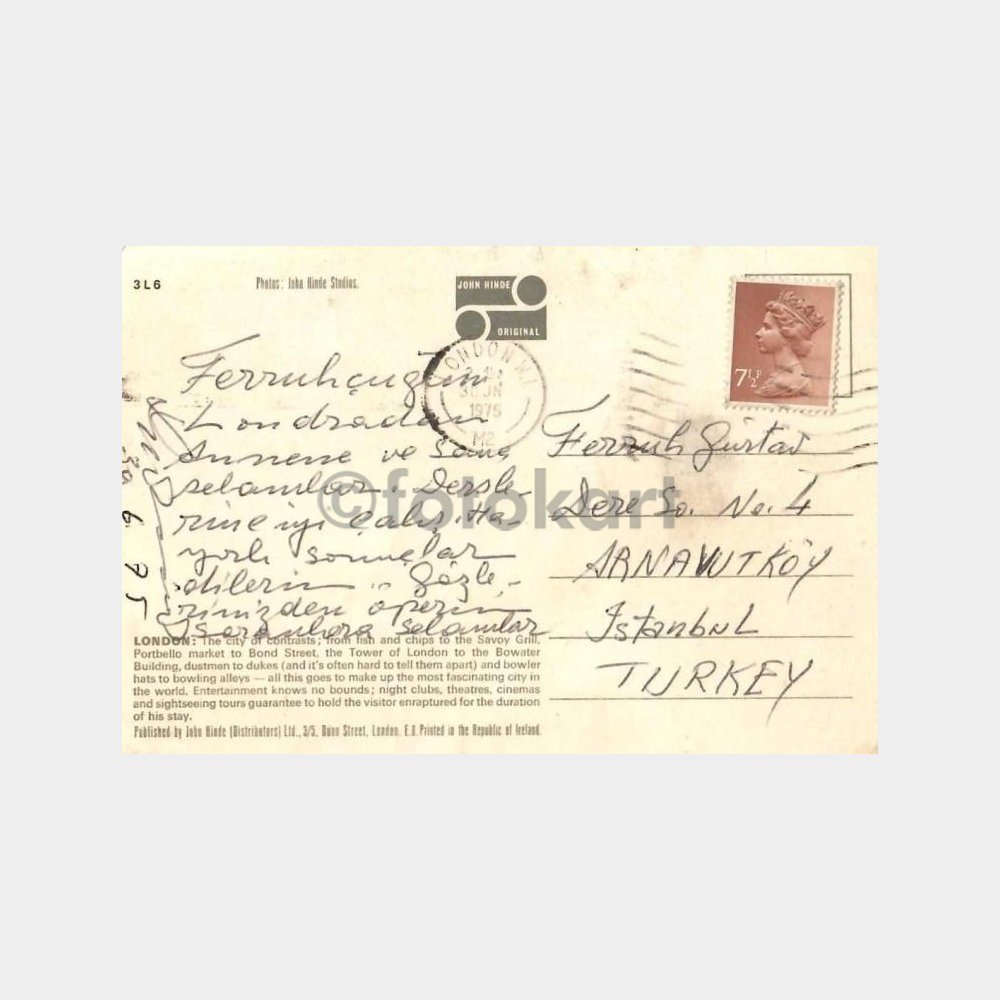 3L6
Photos: John Hinde Studios.
JOHN HINDE
ORIGINAL
LONDON W.1
30 JN
1975
M2
7½P
Ferruhçuğum
Londradan
Annene ve Sana
selamlar. Dersle-
rine iyi Çalış. Ha-
yırlı sonuçlar
dilerim. Gözle-
rinizden öperim
Soranlara selamlar
30 6 75
Ferruh Gürtav
Dere So. No. 4
ARNAVUTKÖY
İstanbul
TURKEY
©fotokart
LONDON: The city of contrasts; from fish and chips to the Savoy Grill,
Portbello market to Bond Street, the Tower of London to the Bowater
Building, dustmen to dukes (and it's often hard to tell them apart) and bowler
hats to bowling alleys — all this goes to make up the most fascinating city in
the world. Entertainment knows no bounds; night clubs, theatres, cinemas
and sightseeing tours guarantee to hold the visitor enraptured for the duration
of his stay.
Published by John Hinde (Distributors) Ltd., 3/5, Dunn Street, London, E.8. Printed in the Republic of Ireland.